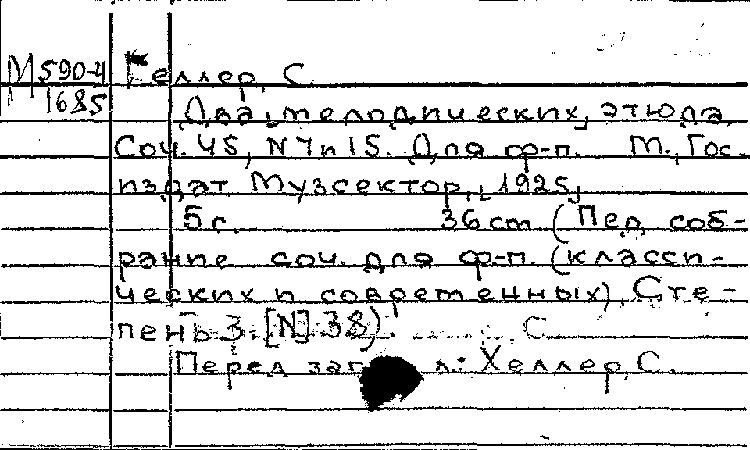 М 590-4 Геллер, С.
1685 Два мелодических этюда.
Соч. 45, N 1 и 15. Для ф-п. М., Гос.
издат. Музсектор, [1925]
5 с. 36 cm (Пед. соб-
рание соч. для ф-п. (класси-
ческих и современных). Сте-
пень 3. [N] 38). С.
Перед заг л.: Хеллер, С.